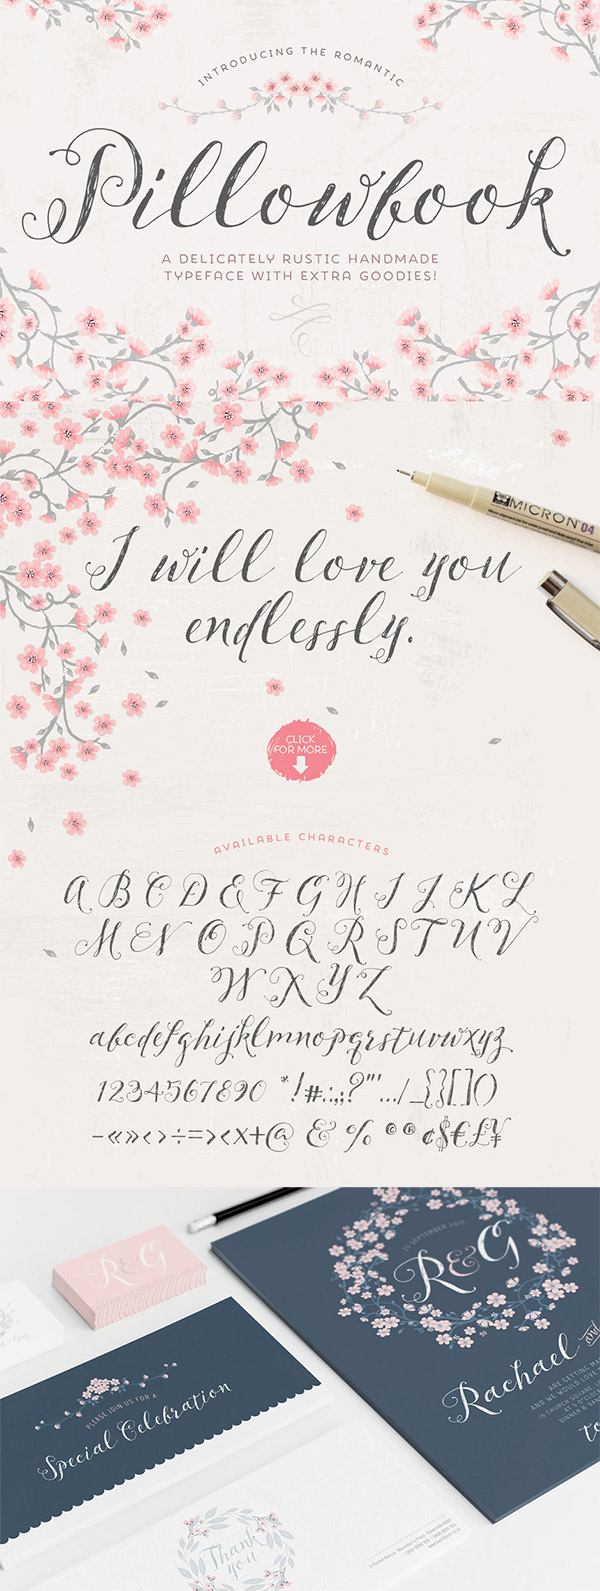 INTRODUCING THE ROMANTIC
Pillowbook
A DELICATELY RUSTIC HANDMADE
TYPEFACE WITH EXTRA GOODIES!
MICRON 04
I will love you
endlessly.
CLICK
FOR MORE
AVAILABLE CHARACTERS
A B C D E F G H I J K L
M N O P Q R S T U V
W X Y Z
abcdefghijklmnopqrstuvwxyz
1234567890 *!#.:,;?"'.../_{}[]()
-«»‹›÷=><x+@ & % ©® ¢$€£¥
R&G
25 SEPTEMBER 2013
R&G
Rachael and
ARE GETTING MA
AND WE WOULD LOVE
16 CHURCH SQUARE
DINNER & DAN
to
PLEASE JOIN US FOR A
Special Celebration
Thank
you